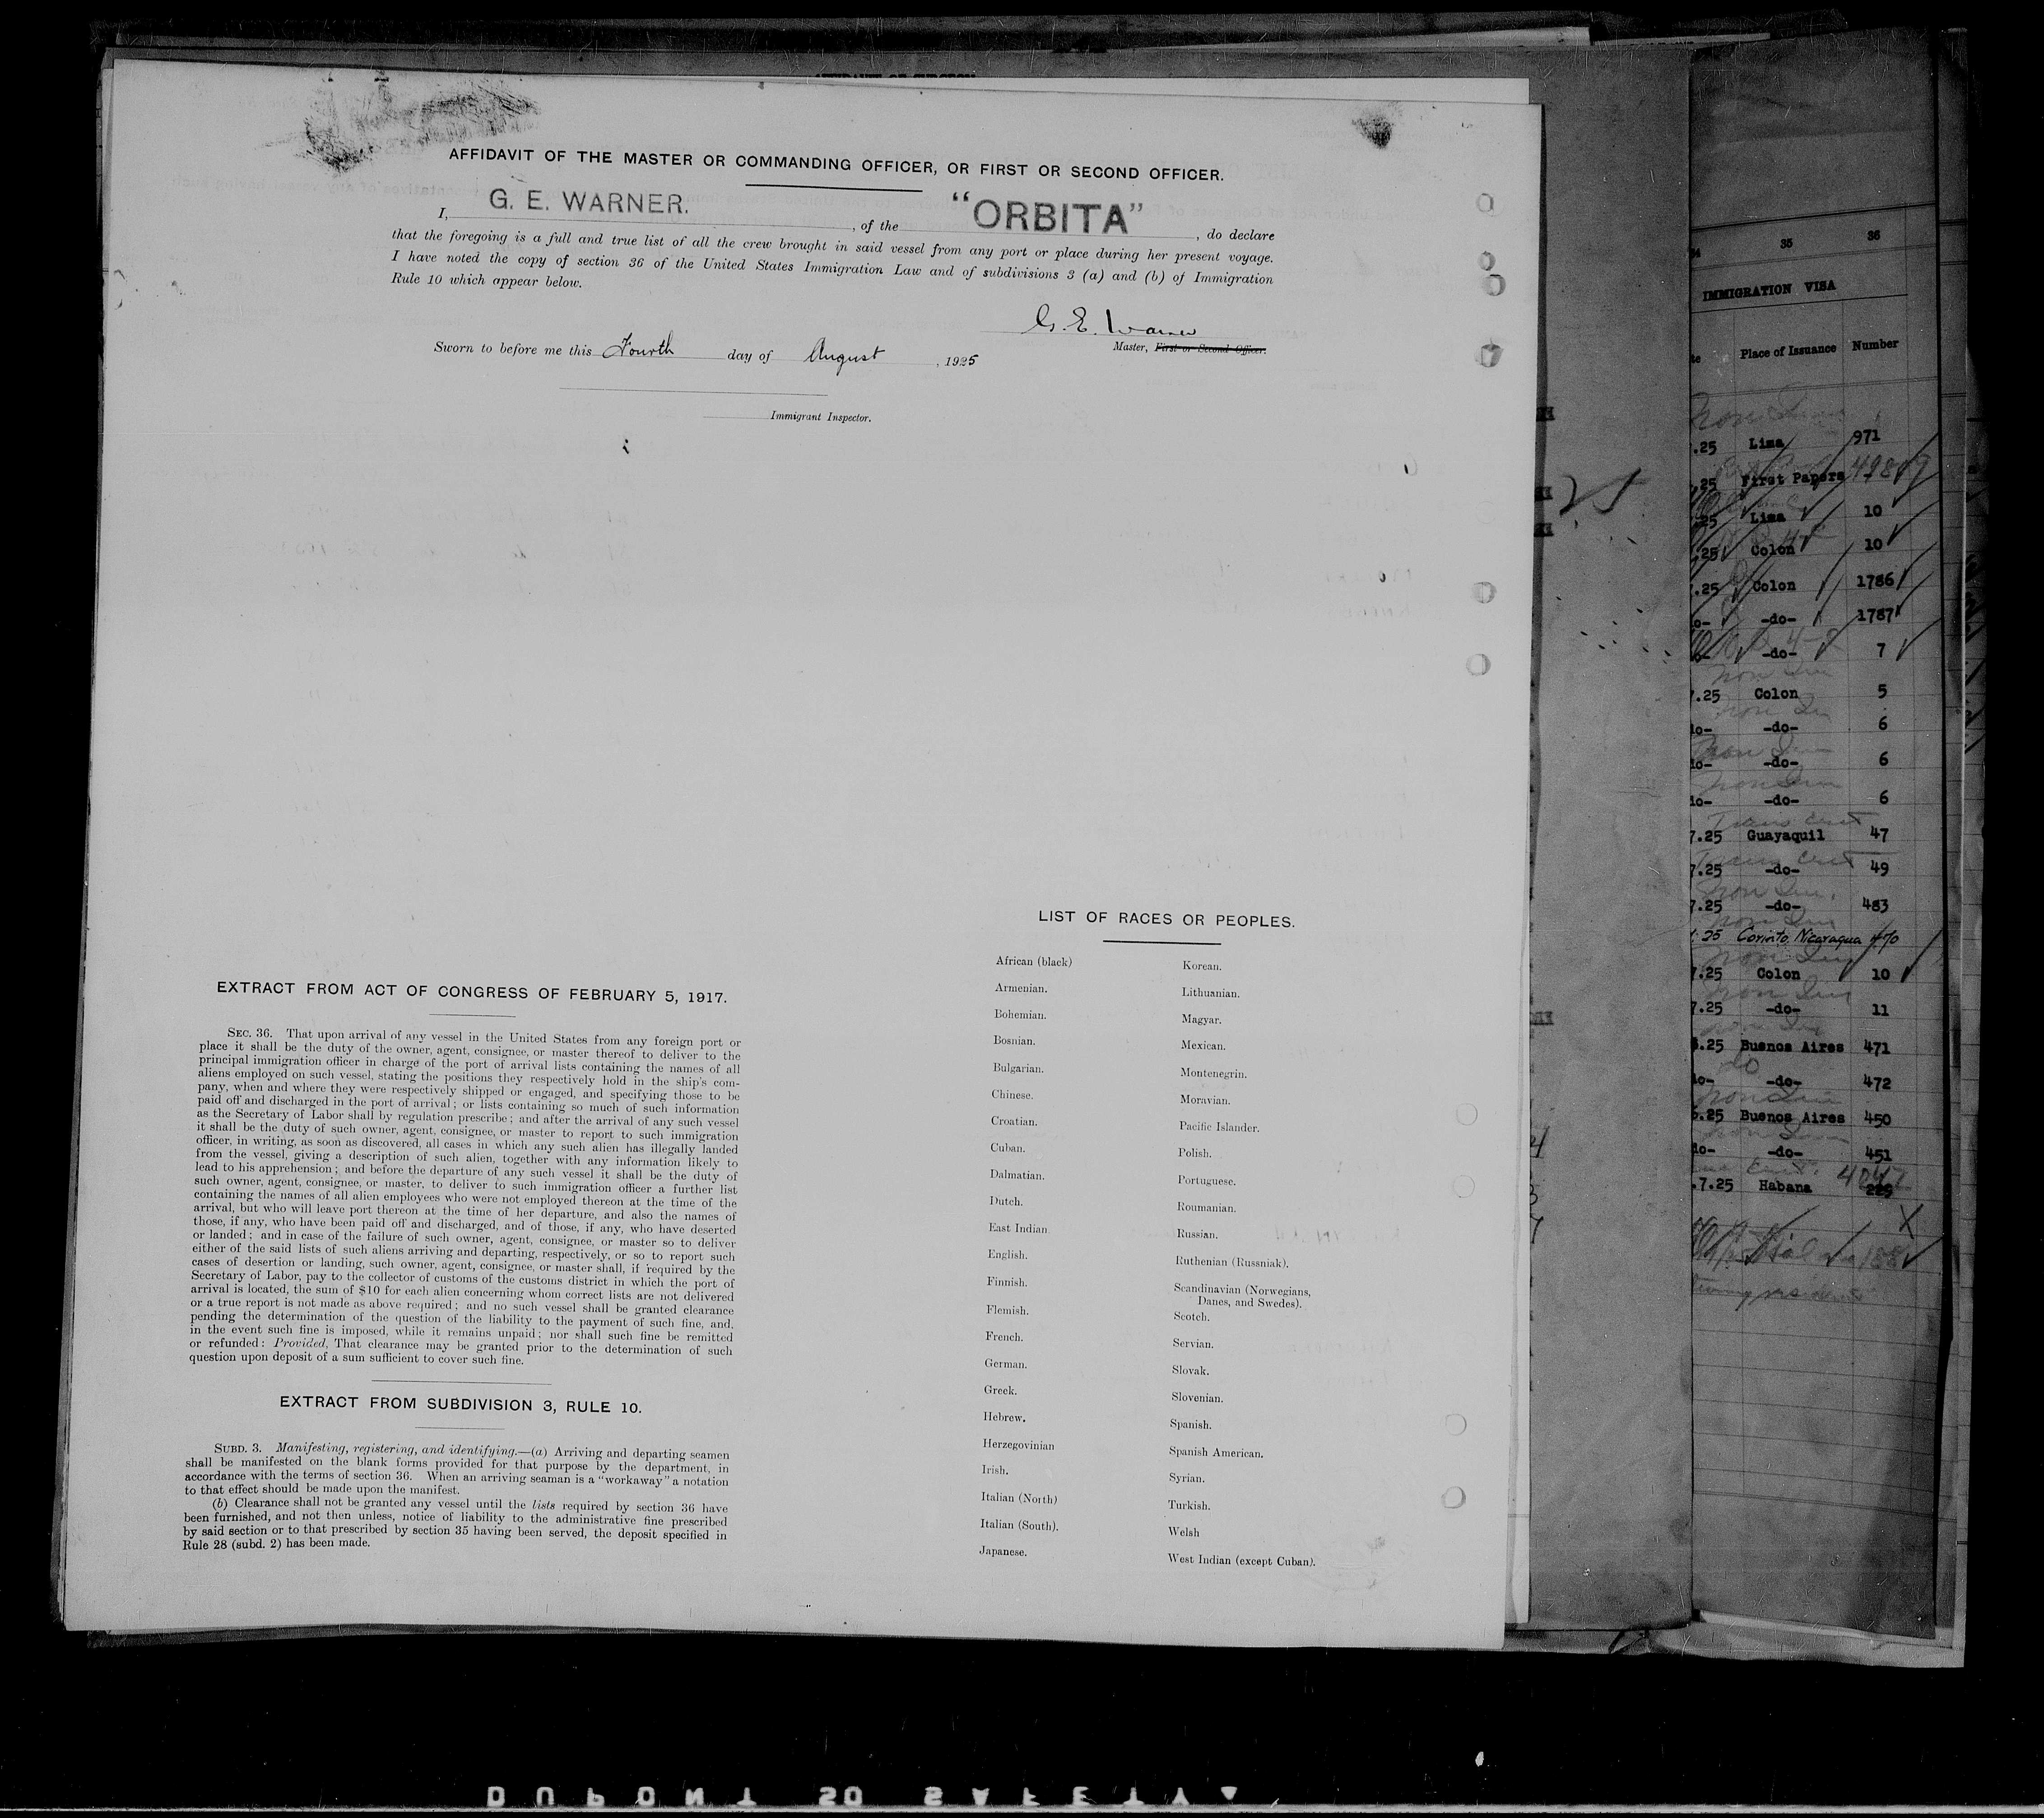 AFFIDAVIT OF THE MASTER OR COMMANDING OFFICER, OR FIRST OR SECOND OFFICER.
I, G. E. WARNER. , of the "ORBITA" , do declare
that the foregoing is a full and true list of all the crew brought in said vessel from any port or place during her present voyage.
I have noted the copy of section 36 of the United States Immigration Law and of subdivisions 3 (a) and (b) of Immigration
Rule 10 which appear below.
G. E. Warner
Master, First or Second Officer.
Sworn to before me this Fourth day of August , 1925
Immigrant Inspector.
EXTRACT FROM ACT OF CONGRESS OF FEBRUARY 5, 1917.
SEC. 36. That upon arrival of any vessel in the United States from any foreign port or
place it shall be the duty of the owner, agent, consignee, or master thereof to deliver to the
principal immigration officer in charge of the port of arrival lists containing the names of all
aliens employed on such vessel, stating the positions they respectively hold in the ship's com-
pany, when and where they were respectively shipped or engaged, and specifying those to be
paid off and discharged in the port of arrival; or lists containing so much of such information
as the Secretary of Labor shall by regulation prescribe; and after the arrival of any such vessel
it shall be the duty of such owner, agent, consignee, or master to report to such immigration
officer, in writing, as soon as discovered, all cases in which any such alien has illegally landed
from the vessel, giving a description of such alien, together with any information likely to
lead to his apprehension; and before the departure of any such vessel it shall be the duty of
such owner, agent, consignee, or master, to deliver to such immigration officer a further list
containing the names of all alien employees who were not employed thereon at the time of the
arrival, but who will leave port thereon at the time of her departure, and also the names of
those, if any, who have been paid off and discharged, and of those, if any, who have deserted
or landed; and in case of the failure of such owner, agent, consignee, or master so to deliver
either of the said lists of such aliens arriving and departing, respectively, or so to report such
cases of desertion or landing, such owner, agent, consignee, or master shall, if required by the
Secretary of Labor, pay to the collector of customs of the customs district in which the port of
arrival is located, the sum of $10 for each alien concerning whom correct lists are not delivered
or a true report is not made as above required; and no such vessel shall be granted clearance
pending the determination of the question of the liability to the payment of such fine, and,
in the event such fine is imposed, while it remains unpaid; nor shall such fine be remitted
or refunded: Provided, That clearance may be granted prior to the determination of such
question upon deposit of a sum sufficient to cover such fine.
EXTRACT FROM SUBDIVISION 3, RULE 10.
SUBD. 3. Manifesting, registering, and identifying.—(a) Arriving and departing seamen
shall be manifested on the blank forms provided for that purpose by the department, in
accordance with the terms of section 36. When an arriving seaman is a "workaway" a notation
to that effect should be made upon the manifest.
(b) Clearance shall not be granted any vessel until the lists required by section 36 have
been furnished, and not then unless, notice of liability to the administrative fine prescribed
by said section or to that prescribed by section 35 having been served, the deposit specified in
Rule 28 (subd. 2) has been made.
LIST OF RACES OR PEOPLES.
African (black)
Armenian.
Bohemian.
Bosnian.
Bulgarian.
Chinese.
Croatian.
Cuban.
Dalmatian.
Dutch.
East Indian
English.
Finnish.
Flemish.
French.
German.
Greek.
Hebrew.
Herzegovinian
Irish.
Italian (North)
Italian (South).
Japanese.
Korean.
Lithuanian.
Magyar.
Mexican.
Montenegrin.
Moravian.
Pacific Islander.
Polish.
Portuguese.
Roumanian.
Russian.
Ruthenian (Russniak).
Scandinavian (Norwegians,
Danes, and Swedes).
Scotch.
Servian.
Slovak.
Slovenian.
Spanish.
Spanish American.
Syrian.
Turkish.
Welsh
West Indian (except Cuban).
35 36
IMMIGRATION VISA
Place of Issuance Number
.25 Lima 971
.25 First Papers
.25 Lima 10
.25 Colon 10
.25 Colon 1786
-do- 1787
-do- 7
7.25 Colon 5
-do- 6
-do- 6
-do- 6
7.25 Guayaquil 47
7.25 -do- 49
7.25 -do- 483
25 Corinto. Nicaragua
7.25 Colon 10
7.25 -do- 11
.25 Buenos Aires 471
-do- 472
.25 Buenos Aires 450
-do- 451
.7.25 Habana
DUPONT SAFETY